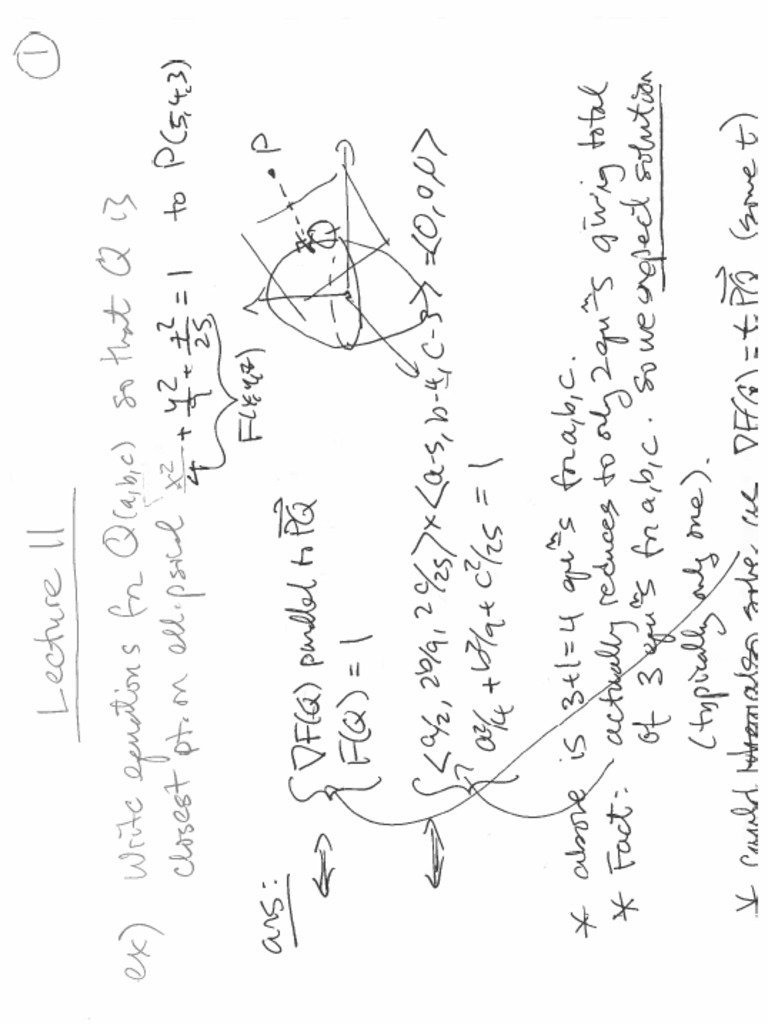 ①
Lecture 11
ex) Write equations for Q(a,b,c) so that Q is
closest pt. on ellipsoid x²/4 + y²/9 + z²/25 = 1 to P(5,4,3)
F(x,y,z)
P
Q
ans:
⟺ { ∇F(Q) parallel to PQ⃗
F(Q) = 1
⟺ { <a/2, 2b/9, 2c/25> × <a-5, b-4, c-3> = <0,0,0>
a²/4 + b²/9 + c²/25 = 1
* above is 3+1=4 equⁿs for a,b,c.
* Fact: actually reduces to only 2 equⁿs giving total
of 3 equⁿs for a,b,c. So we expect solution
(typically only one).
* could also solve ∇F(Q) = t·PQ⃗ (some t)